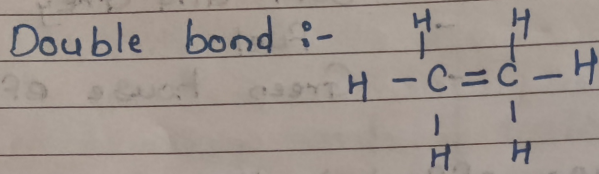 Double bond :-
H H
H - C = C - H
H H